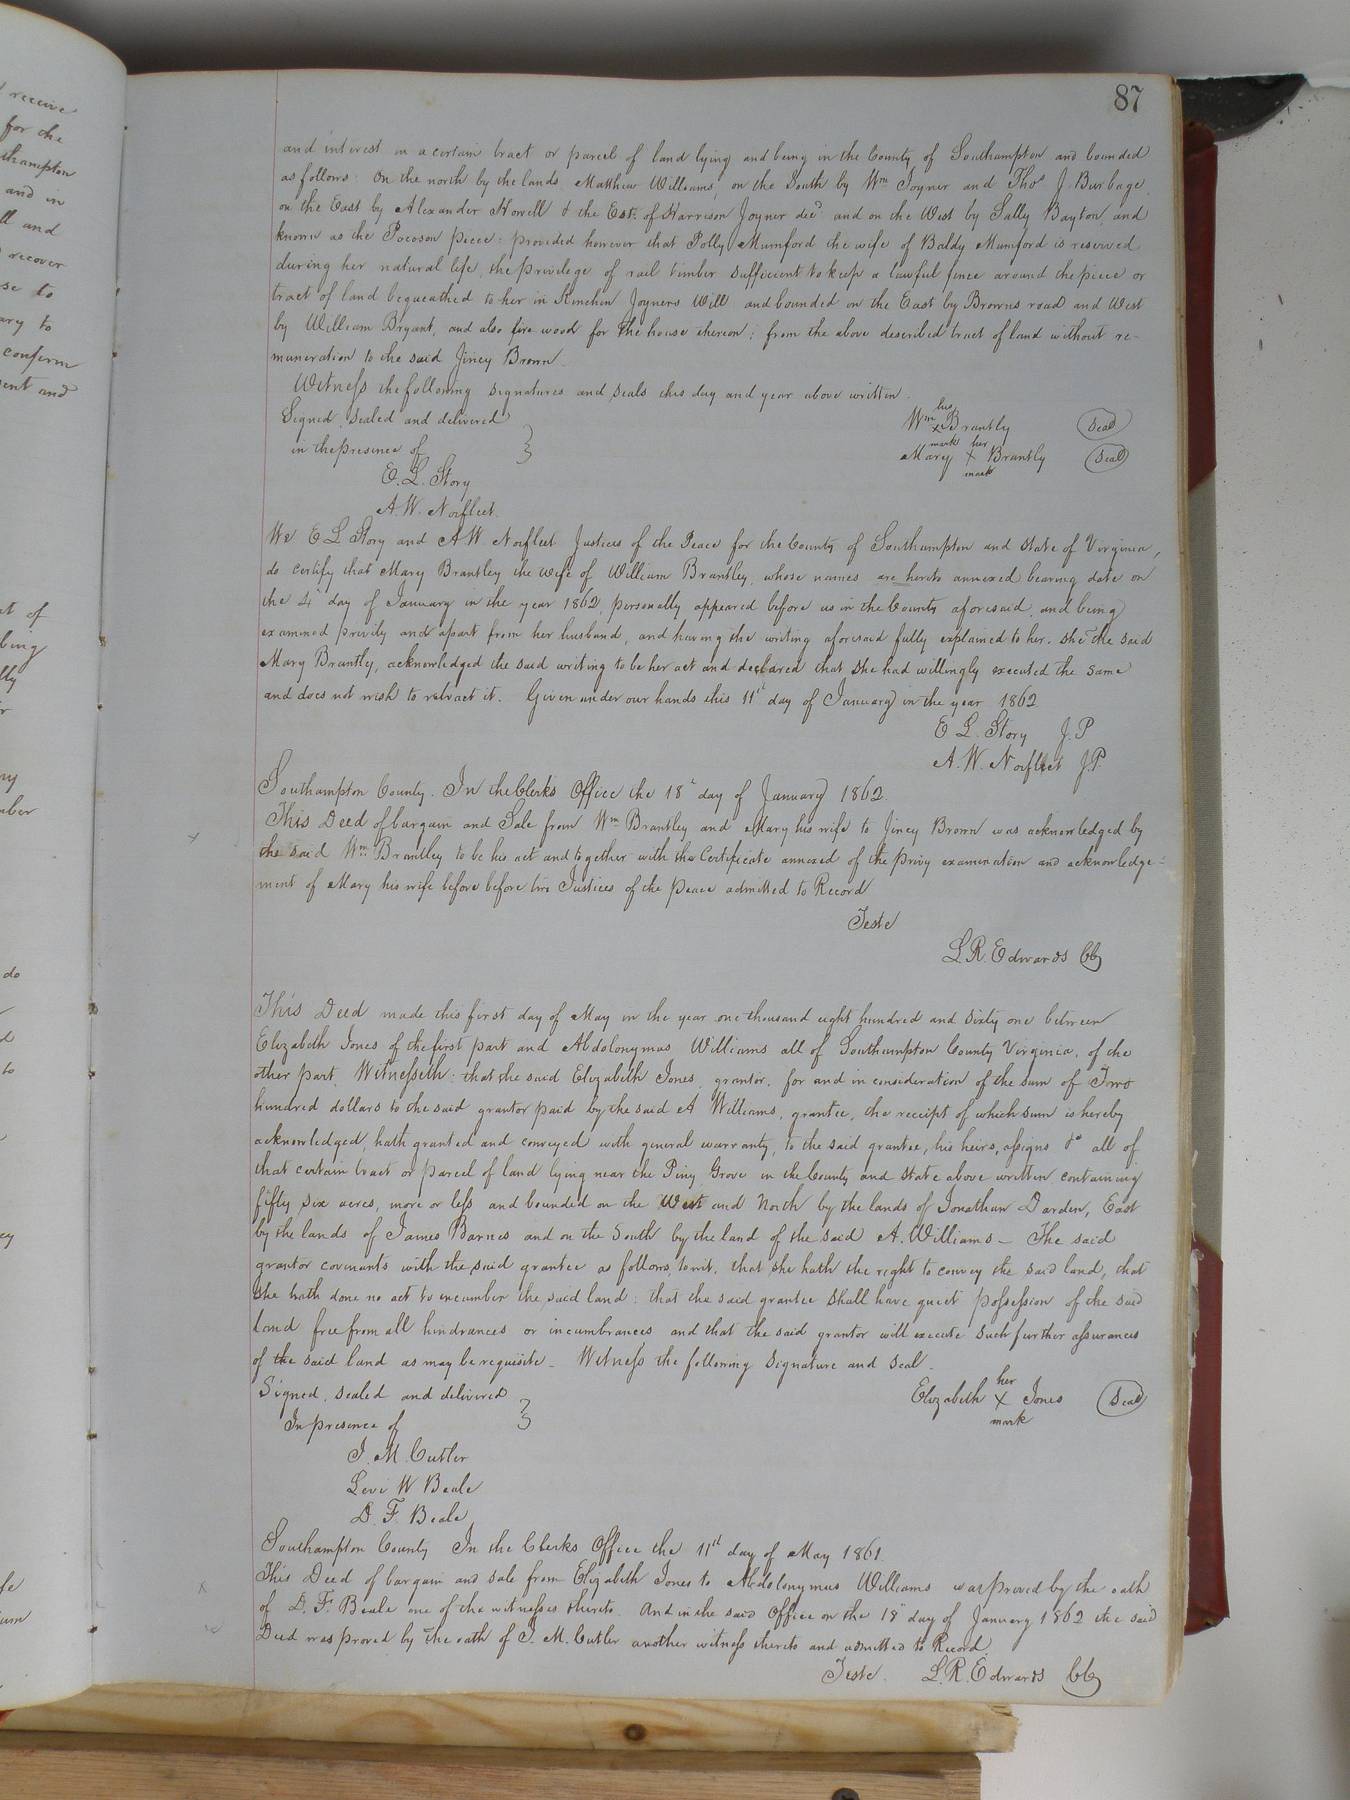 87
and interest in a certain tract or parcel of land lying and being in the County of Southampton and bounded
as follows: On the north by the lands Matthew Williams, on the South by Wm Joyner and Thos J. Burbage,
on the East by Alexander Howell & the Est. of Harrison Joyner decd and on the West by Sally Bayton, and
known as the Pocoson piece: provided however that Polly Mumford the wife of Baldy Mumford is reserved
during her natural life, the privilege of rail timber sufficient to keep a lawful fence around the piece or
tract of land bequeathed to her in Kinchen Joyners Will and bounded on the East by Browns road and West
by William Bryant, and also fire wood for the house thereon; from the above described tract of land without re-
muneration to the said Jincy Brown.
Witness the following signatures and seals this day and year above written.
Signed, sealed and delivered
in the presence of
E. L. Story
A. W. Norfleet.
Wm his x mark Brantly Seal
Mary her x mark Brantly Seal
We E L Story and A W Norfleet Justices of the Peace for the County of Southampton and State of Virginia,
do certify that Mary Brantley the wife of William Brantley, whose names are hereto annexed bearing date on
the 4th day of January in the year 1862, personally appeared before us in the County aforesaid, and being
examined privily and apart from her husband, and having the writing aforesaid fully explained to her. She the said
Mary Brantly, acknowledged the said writing to be her act and declared that she had willingly executed the same
and does not wish to retract it. Given under our hands this 11th day of January in the year 1862
E L. Story J.P
A. W. Norfleet J.P.
Southampton County. In the Clerks Office the 18th day of January 1862.
This Deed of bargain and Sale from Wm Brantley and Mary his wife to Jincy Brown was acknowledged by
the said Wm Brantley to be his act and together with the Certificate annexed of the privy examination and acknowledge-
ment of Mary his wife before before two Justices of the peace admitted to Record
Teste
L. R. Edwards CC
This Deed made this first day of May in the year one thousand eight hundred and sixty one between
Elizabeth Jones of the first part and Abdolonymas Williams all of Southampton County Virginia, of the
other part. Witnesseth: that the said Elizabeth Jones, grantor, for and in consideration of the sum of Two
hundred dollars to the said grantor paid by the said A Williams, grantee, the receipt of which sum is hereby
acknowledged, hath granted and conveyed with general warranty, to the said grantee, his heirs, assigns &c all of
that certain tract or parcel of land lying near the Piny Grove in the County and State above written containing
fifty six acres, more or less and bounded on the West and North by the lands of Jonathan Darden, East
by the lands of James Barnes and on the South by the land of the said A. Williams - The said
grantor covenants with the said grantee as follows, to wit, that she hath the right to convey the said land, that
she hath done no act to encumber the said land: that the said grantee shall have quiet possession of the said
land free from all hindrances or incumbrances and that the said grantor will execute such further assurances
of the said land as may be requisite - Witness the following signature and seal.
Signed, sealed and delivered
In presence of
J. M. Cutler
Levi W Beale
D. F. Beale
Elizabeth her x mark Jones Seal
Southampton County In the Clerks Office the 11th day of May 1861.
This Deed of bargain and sale from Elizabeth Jones to Abdolonymus Williams was proved by the oath
of D. F. Beale one of the witnesses thereto. And in the said Office on the 18th day of January 1862 the said
Deed was proved by the oath of J. M. Cutler another witness thereto and admitted to Record
Teste. L. R. Edwards CC